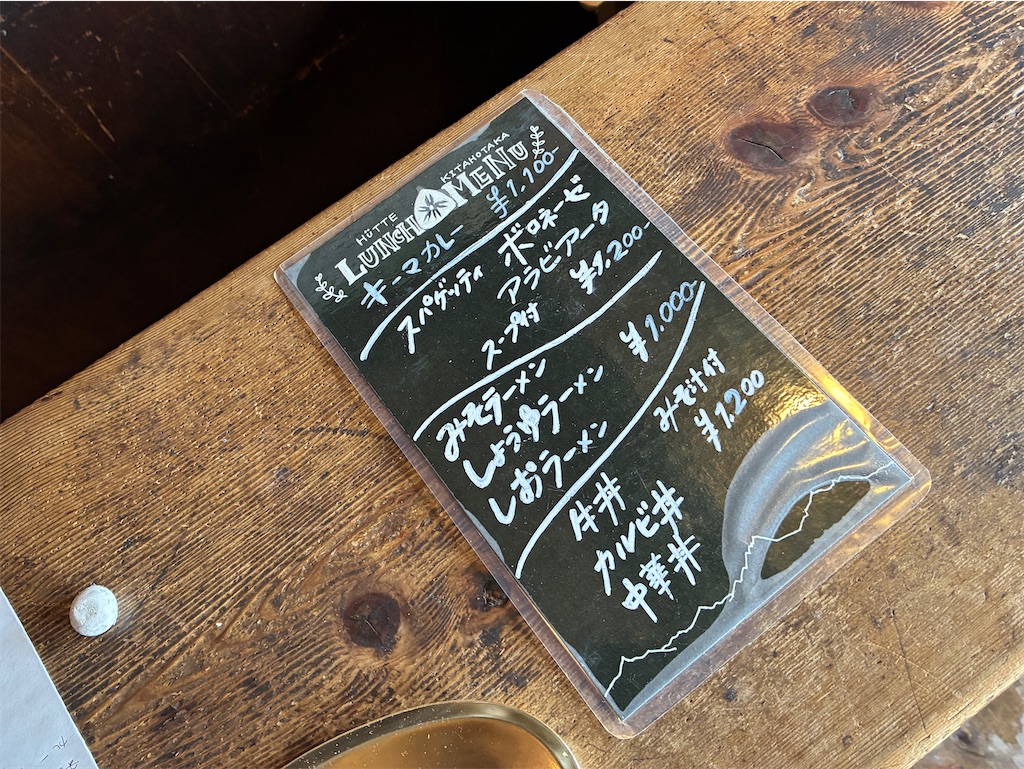 HÜTTE KITAHOTAKA
LUNCH MENU
キーマカレー ¥1,100-
スパゲッティ ボロネーゼ
アラビアータ
スープ付 ¥1,200-
みそラーメン
しょうゆラーメン ¥1,000-
しおラーメン
みそ汁付
¥1,200
牛丼
カルビ丼
中華丼